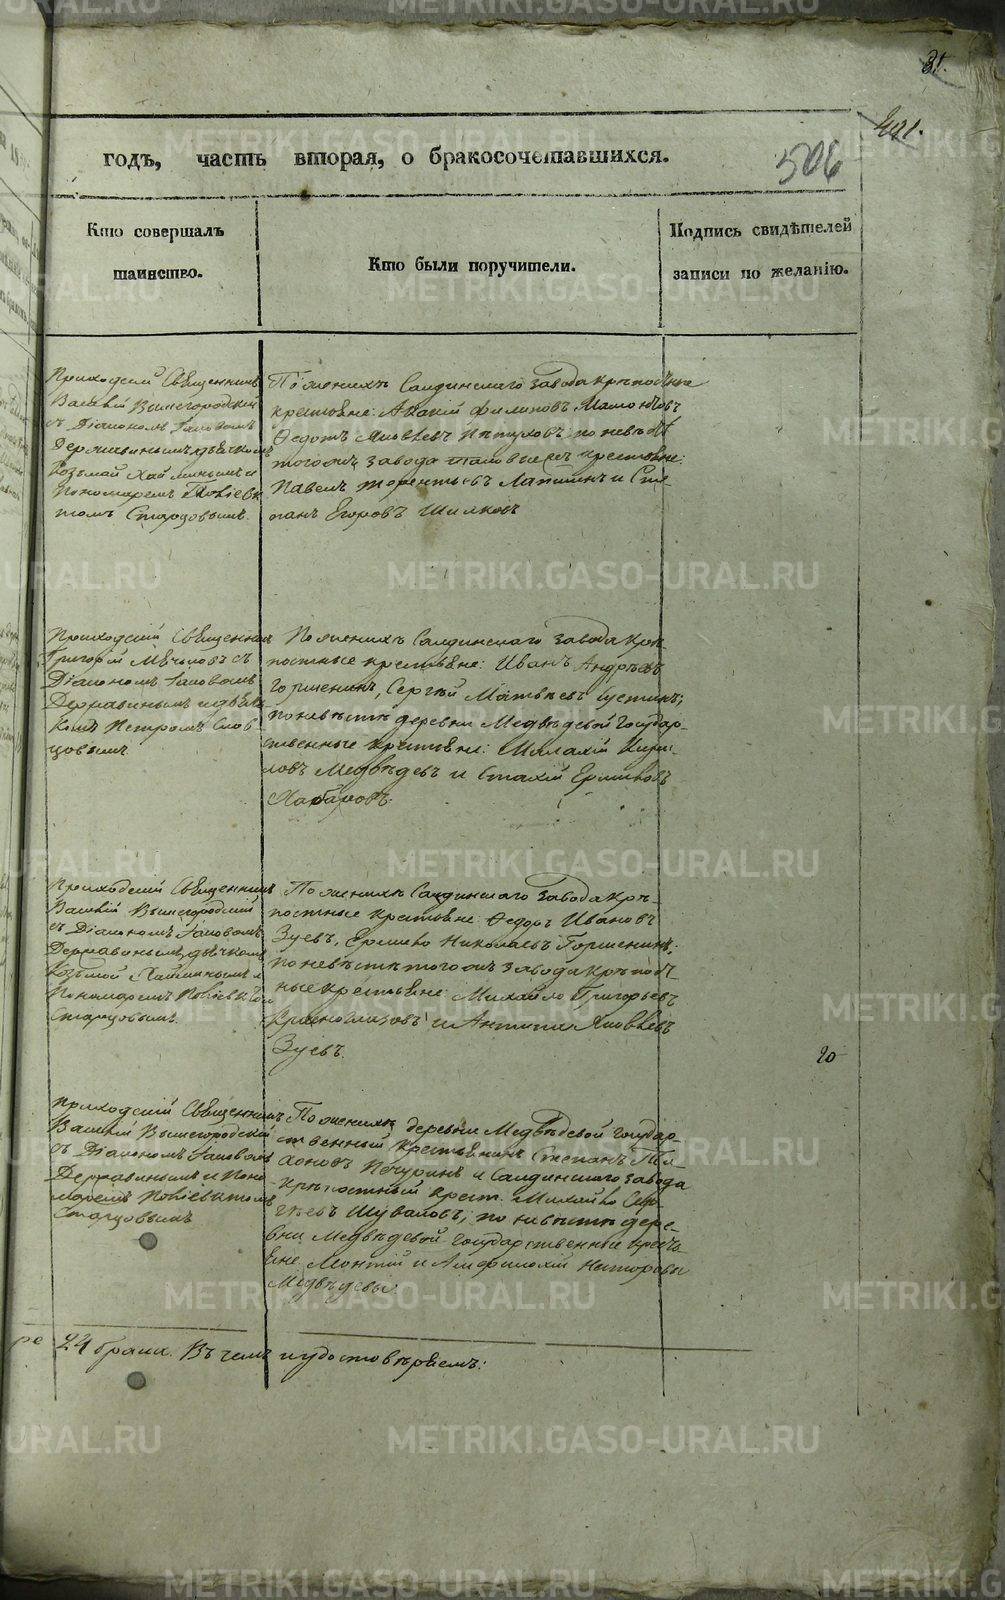 31.
491.
506
годъ, часть вторая, о бракосочетавшихся.
Кто совершалъ
таинство.
Кто были поручители.
Подпись свидѣтелей
записи по желанію.
Приходскій Священникъ
Василій Вышегородскій
съ Діакономъ Іаковомъ
Державинымъ, дьячкомъ
Козьмой Хайминымъ и
Пономаремъ
Старцовымъ.
По женихѣ Салдинскаго завода крѣпостные
крестьяне: Акакій Филиповъ Мамонтовъ
Ѳедотъ Яковлевъ Пѣтуховъ; по невѣстѣ
того онъ завода таковые съ крестьяне:
Павелъ Терентьевъ Лапшинъ и Сте-
панъ Егоровъ Шилковъ
Приходскій Священникъ
Григорій съ
Діакономъ Іаковомъ
Державинымъ и дьяч-
комъ Петромъ Слов-
цовымъ
По женихѣ Салдинскаго завода крѣ-
постные крестьяне: Иванъ Андрѣевъ
Горшенинъ, Сергѣй Матвѣевъ
по невѣстѣ деревни Медвѣдевой Государ-
ственные крестьяне: Малахій Кири-
ловъ Медвѣдевъ и Стахій
Хабаровъ.
Приходскій Священникъ
Василій Вышегородскій
съ Діакономъ Іаковомъ
Державинымъ, дьячкомъ
Козьмой Хайминымъ и
Пономаремъ
Старцовымъ.
По женихѣ Салдинскаго завода крѣ-
постные крестьяне Ѳедоръ Ивановъ
Зуевъ, Николаевъ Горшенинъ;
по невѣстѣ того онъ завода крѣпост-
ные крестьяне: Михайло Григорьевъ
Красноглазовъ и Антипа Яковлевъ
Зуевъ.
20
Приходскій Священникъ
Василій Вышегородскій
съ Діакономъ Іаковомъ
Державинымъ и Поно-
маремъ
Старцовымъ
По женихѣ деревни Медвѣдевой Государ-
ственный крестьянинъ Степанъ
Печуринъ и Салдинскаго завода
крѣпостный крест. Михайло Сер-
гѣевъ Шуваловъ; по невѣстѣ дере-
вни Медвѣдевой Государственные кресть-
яне Монтій и Амфилохій
Медвѣдевы.
ре 24 брака. Въ чемъ и удостовѣряемъ: